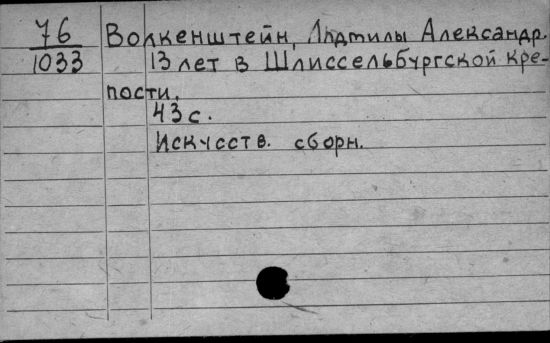 76 Волкенштейн, Людмилы Александр.
1033 13 лет в Шлиссельбургской кре-
пости.
43 с.
Искусств. сборн.